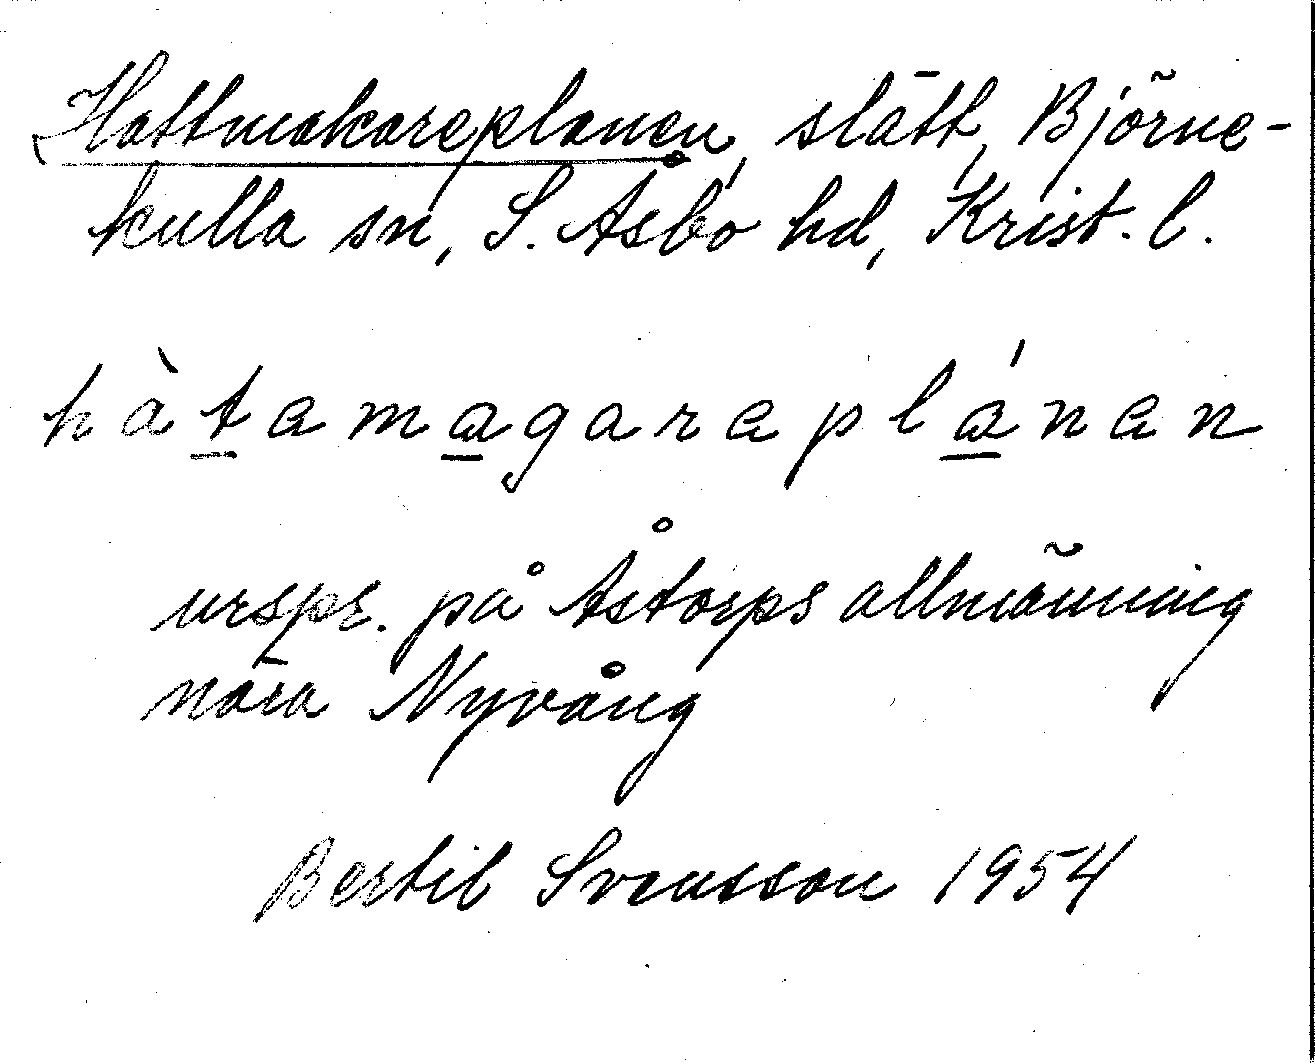 Hattmakareplanen, slätt, Björne-
kulla sn, S. Åsbo hd, Krist. l.
hàtamagareplánen
urspr. på Åstorps allmänning
nära Nyvång
Bertil Svensson 1954